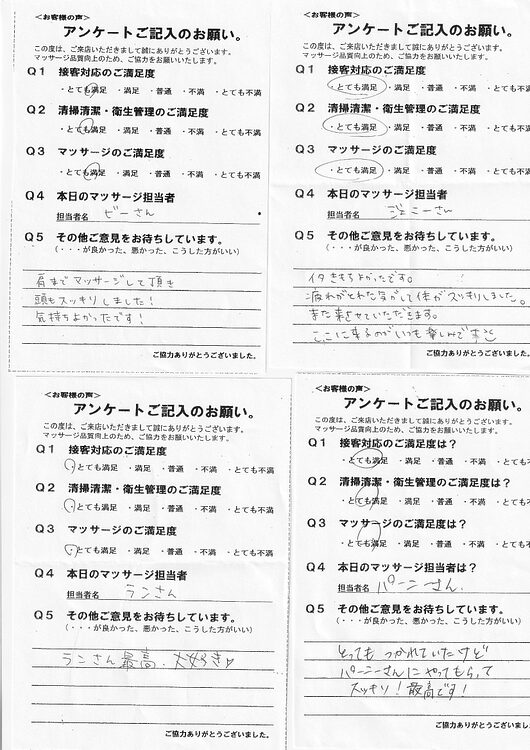 <お客様の声>
アンケートご記入のお願い。
この度は、ご来店いただきまして誠にありがとうございます。
マッサージ品質向上のため、ご協力をお願いいたします。
Q1 接客対応のご満足度
・とても満足 ・満足 ・普通 ・不満 ・とても不満
Q2 清掃清潔・衛生管理のご満足度
・とても満足 ・満足 ・普通 ・不満 ・とても不満
Q3 マッサージのご満足度
・とても満足 ・満足 ・普通 ・不満 ・とても不満
Q4 本日のマッサージ担当者
担当者名 ビーさん
Q5 その他ご意見をお待ちしています。
(・・・が良かった、悪かった、こうした方がいい)
肩までマッサージして頂き
頭もスッキリしました!
気持ちよかったです!
ご協力ありがとうございました。
<お客様の声>
アンケートご記入のお願い。
この度は、ご来店いただきまして誠にありがとうございます。
マッサージ品質向上のため、ご協力をお願いいたします。
Q1 接客対応のご満足度
・とても満足 ・満足 ・普通 ・不満 ・とても不満
Q2 清掃清潔・衛生管理のご満足度
・とても満足 ・満足 ・普通 ・不満 ・とても不満
Q3 マッサージのご満足度
・とても満足 ・満足 ・普通 ・不満 ・とても不満
Q4 本日のマッサージ担当者
担当者名 ジェニーさん
Q5 その他ご意見をお待ちしています。
(・・・が良かった、悪かった、こうした方がいい)
イタきもちよかったです。
疲れがとれた気がして体がスッキリしました。
また来させていただきます。
ここに来るのがいつも楽しみです
ご協力ありがとうございました。
<お客様の声>
アンケートご記入のお願い。
この度は、ご来店いただきまして誠にありがとうございます。
マッサージ品質向上のため、ご協力をお願いいたします。
Q1 接客対応のご満足度
・とても満足 ・満足 ・普通 ・不満 ・とても不満
Q2 清掃清潔・衛生管理のご満足度
・とても満足 ・満足 ・普通 ・不満 ・とても不満
Q3 マッサージのご満足度
・とても満足 ・満足 ・普通 ・不満 ・とても不満
Q4 本日のマッサージ担当者
担当者名 ランさん
Q5 その他ご意見をお待ちしています。
(・・・が良かった、悪かった、こうした方がいい)
ランさん最高、大好き♡
ご協力ありがとうございました。
<お客様の声>
アンケートご記入のお願い。
この度は、ご来店いただきまして誠にありがとうございます。
マッサージ品質向上のため、ご協力をお願いいたします。
Q1 接客対応のご満足度は?
・とても満足 ・満足 ・普通 ・不満 ・とても不満
Q2 清掃清潔・衛生管理のご満足度は?
・とても満足 ・満足 ・普通 ・不満 ・とても不満
Q3 マッサージのご満足度は?
・とても満足 ・満足 ・普通 ・不満 ・とても不満
Q4 本日のマッサージ担当者は?
担当者名 パーニーさん.
Q5 その他ご意見をお待ちしています。
(・・・が良かった、悪かった、こうした方がいい)
とってもつかれていたけど
パーニーさんにやってもらって
スッキリ!最高です!
ご協力ありがとうございました。